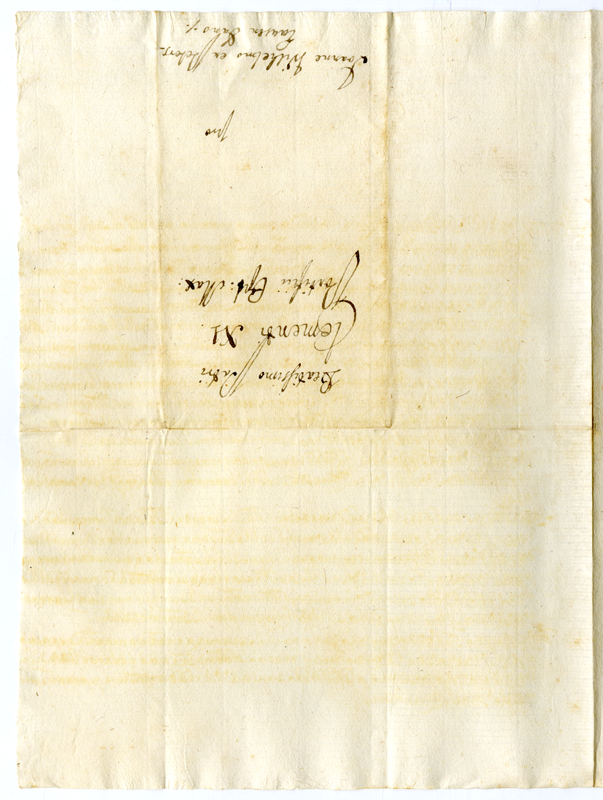 Beatissimo Patri
Clementi XI.
Pontifici Opt: Max:
pro
Joanne Wilhelmo ex